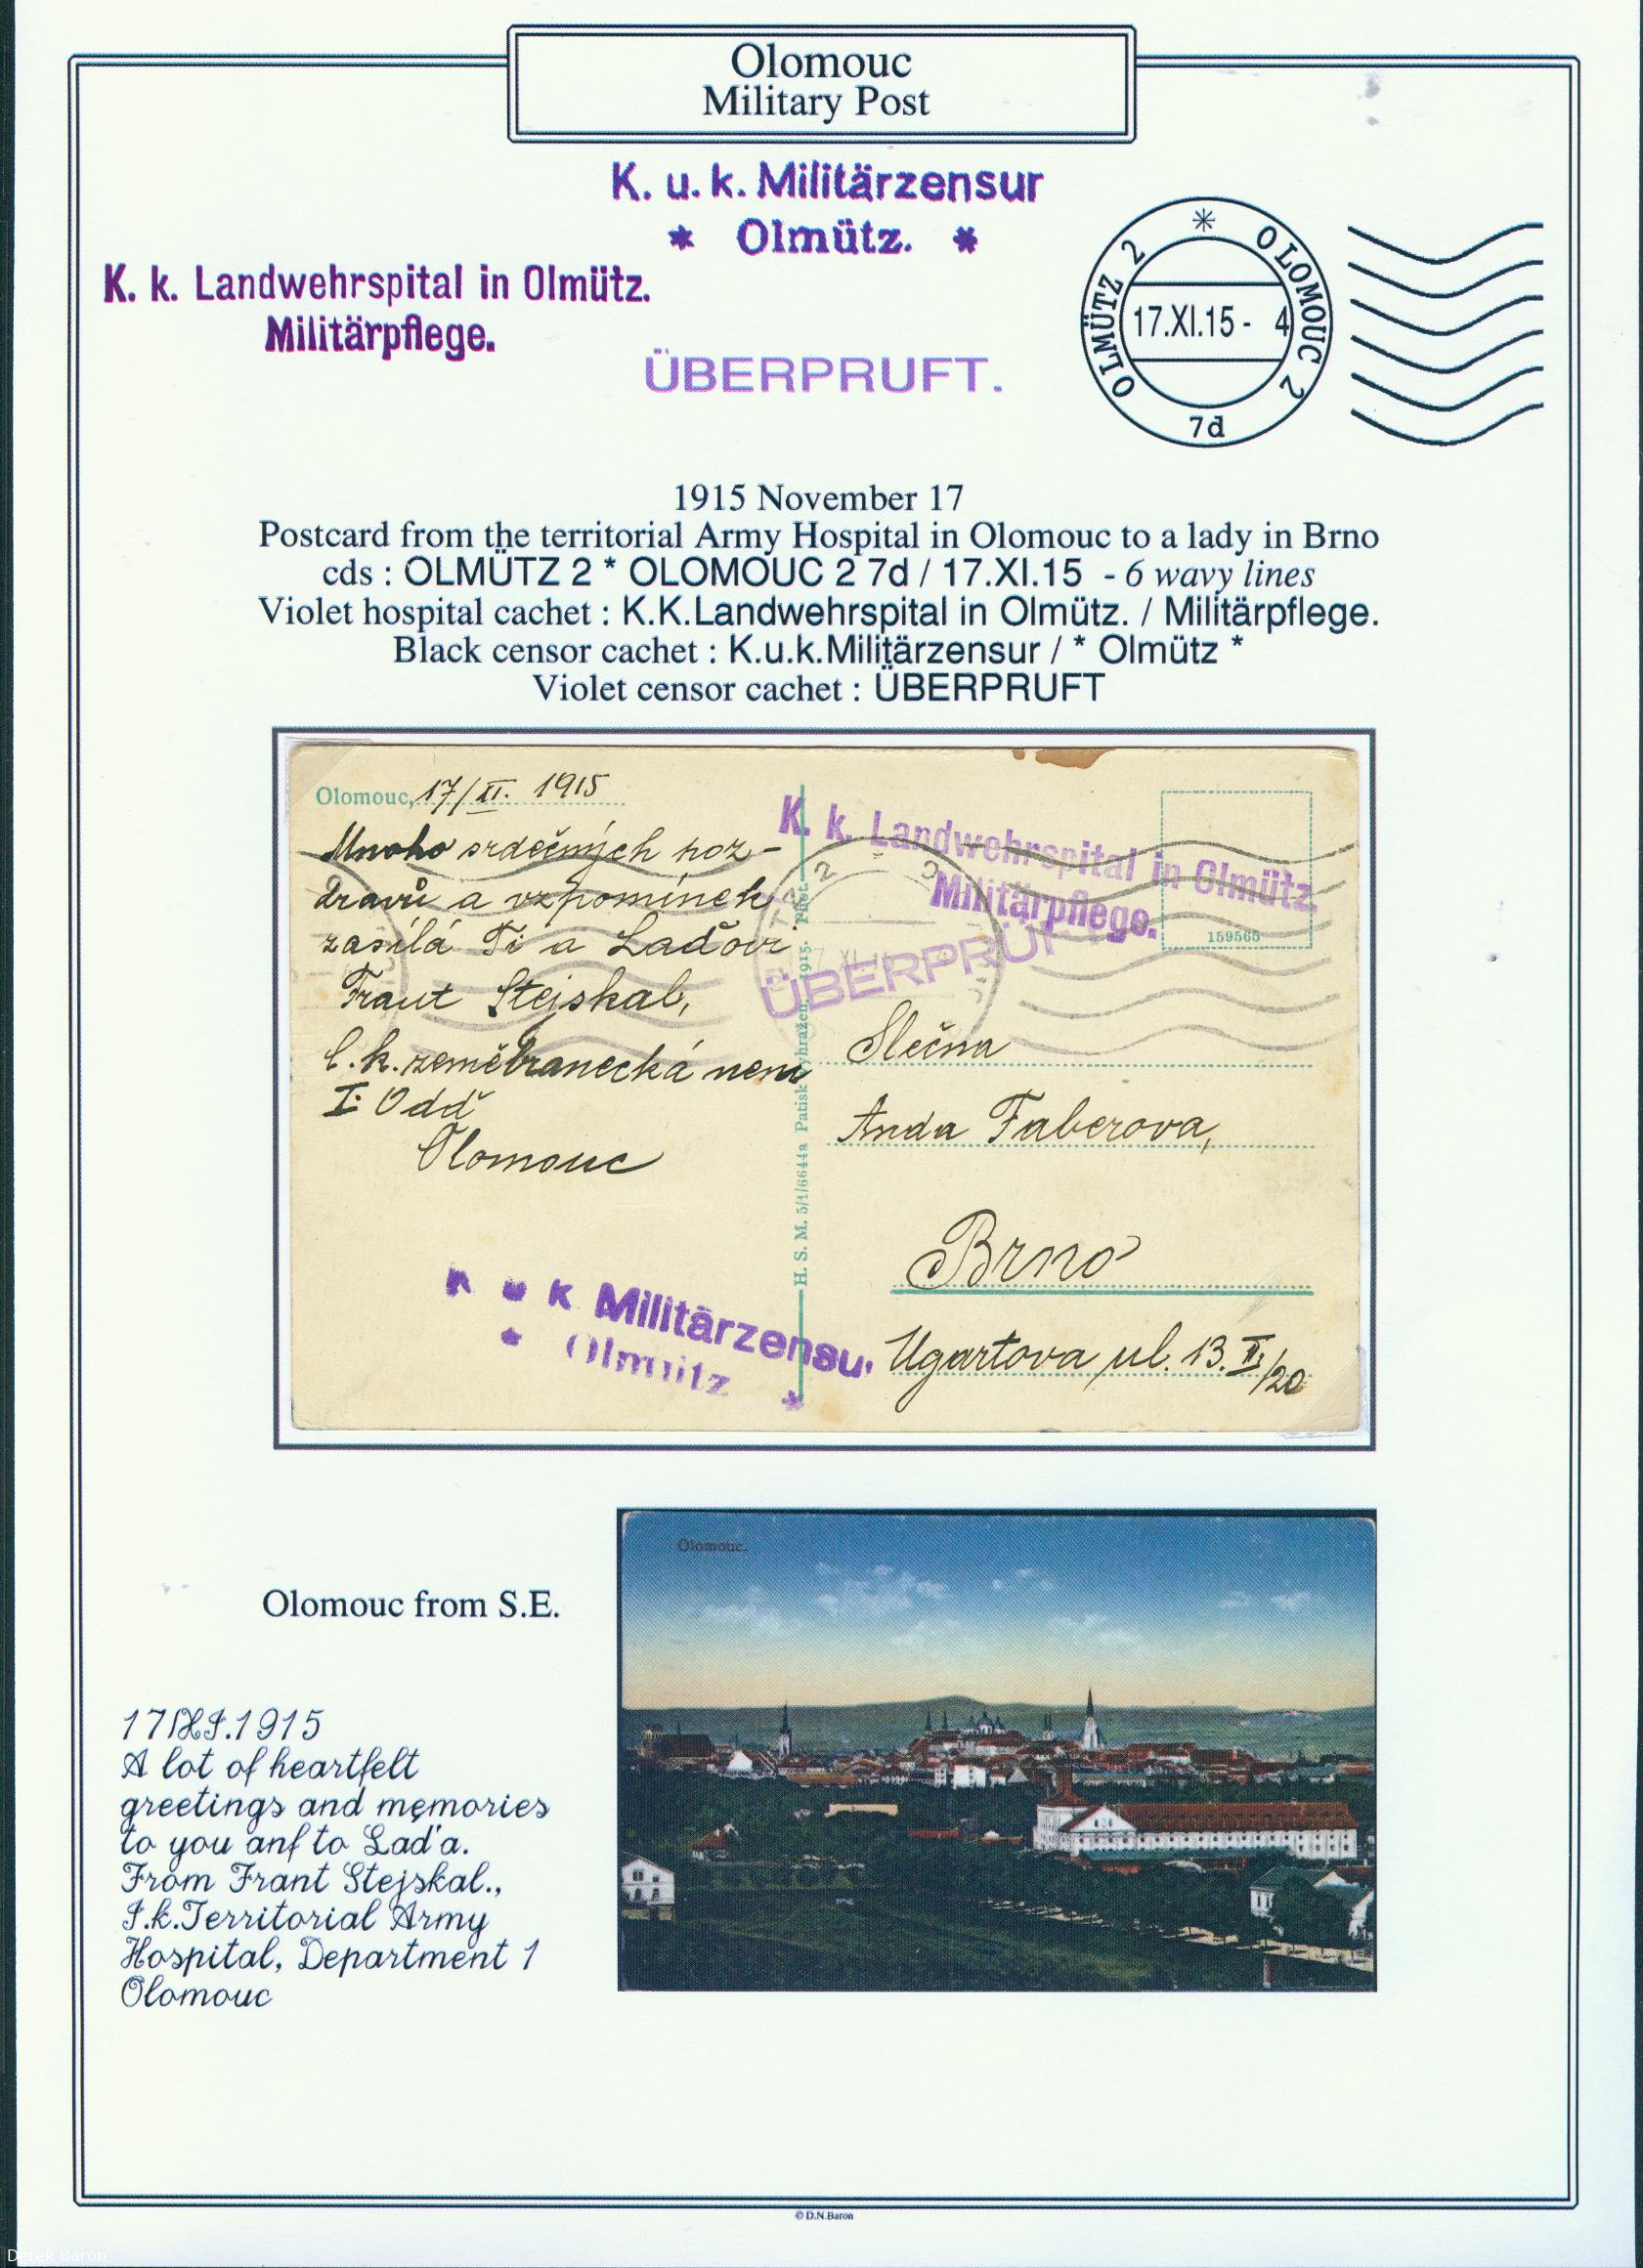 Olomouc
Military Post
K. u. k. Militärzensur
* Olmütz. *
K. k. Landwehrspital in Olmütz.
Militärpflege.
ÜBERPRUFT.
OLMÜTZ 2 * OLOMOUC 2
17.XI.15 - 4
7d
1915 November 17
Postcard from the territorial Army Hospital in Olomouc to a lady in Brno
cds : OLMÜTZ 2 * OLOMOUC 2 7d / 17.XI.15 - 6 wavy lines
Violet hospital cachet : K.K.Landwehrspital in Olmütz. / Militärpflege.
Black censor cachet : K.u.k.Militärzensur / * Olmütz *
Violet censor cachet : ÜBERPRUFT
Olomouc, 17/XI. 1915
Mnoho srdečných poz-
dravů a vzpomínek
zasílá Ti a Laďovi
Frant Stejskal,
C.k. zeměbranecká nem
I. Odd
Olomouc
K. k. Landwehrspital in Olmütz.
Militärpflege.
ÜBERPRÜF
159565
H. S. M. 5/1/6644a Patisk vyhražen. 1915. Phot.
Slečna
Anda Faberova,
Brno
Ugartova ul. 13. II/20
K u k Militärzensu
* Olmütz *
Olomouc.
Olomouc from S.E.
17/XI.1915
A lot of heartfelt
greetings and memories
to you anf to Lad'a.
From Frant Stejskal.,
I.k.Territorial Army
Hospital, Department 1
Olomouc
© D.N.Baron
Derek Baron